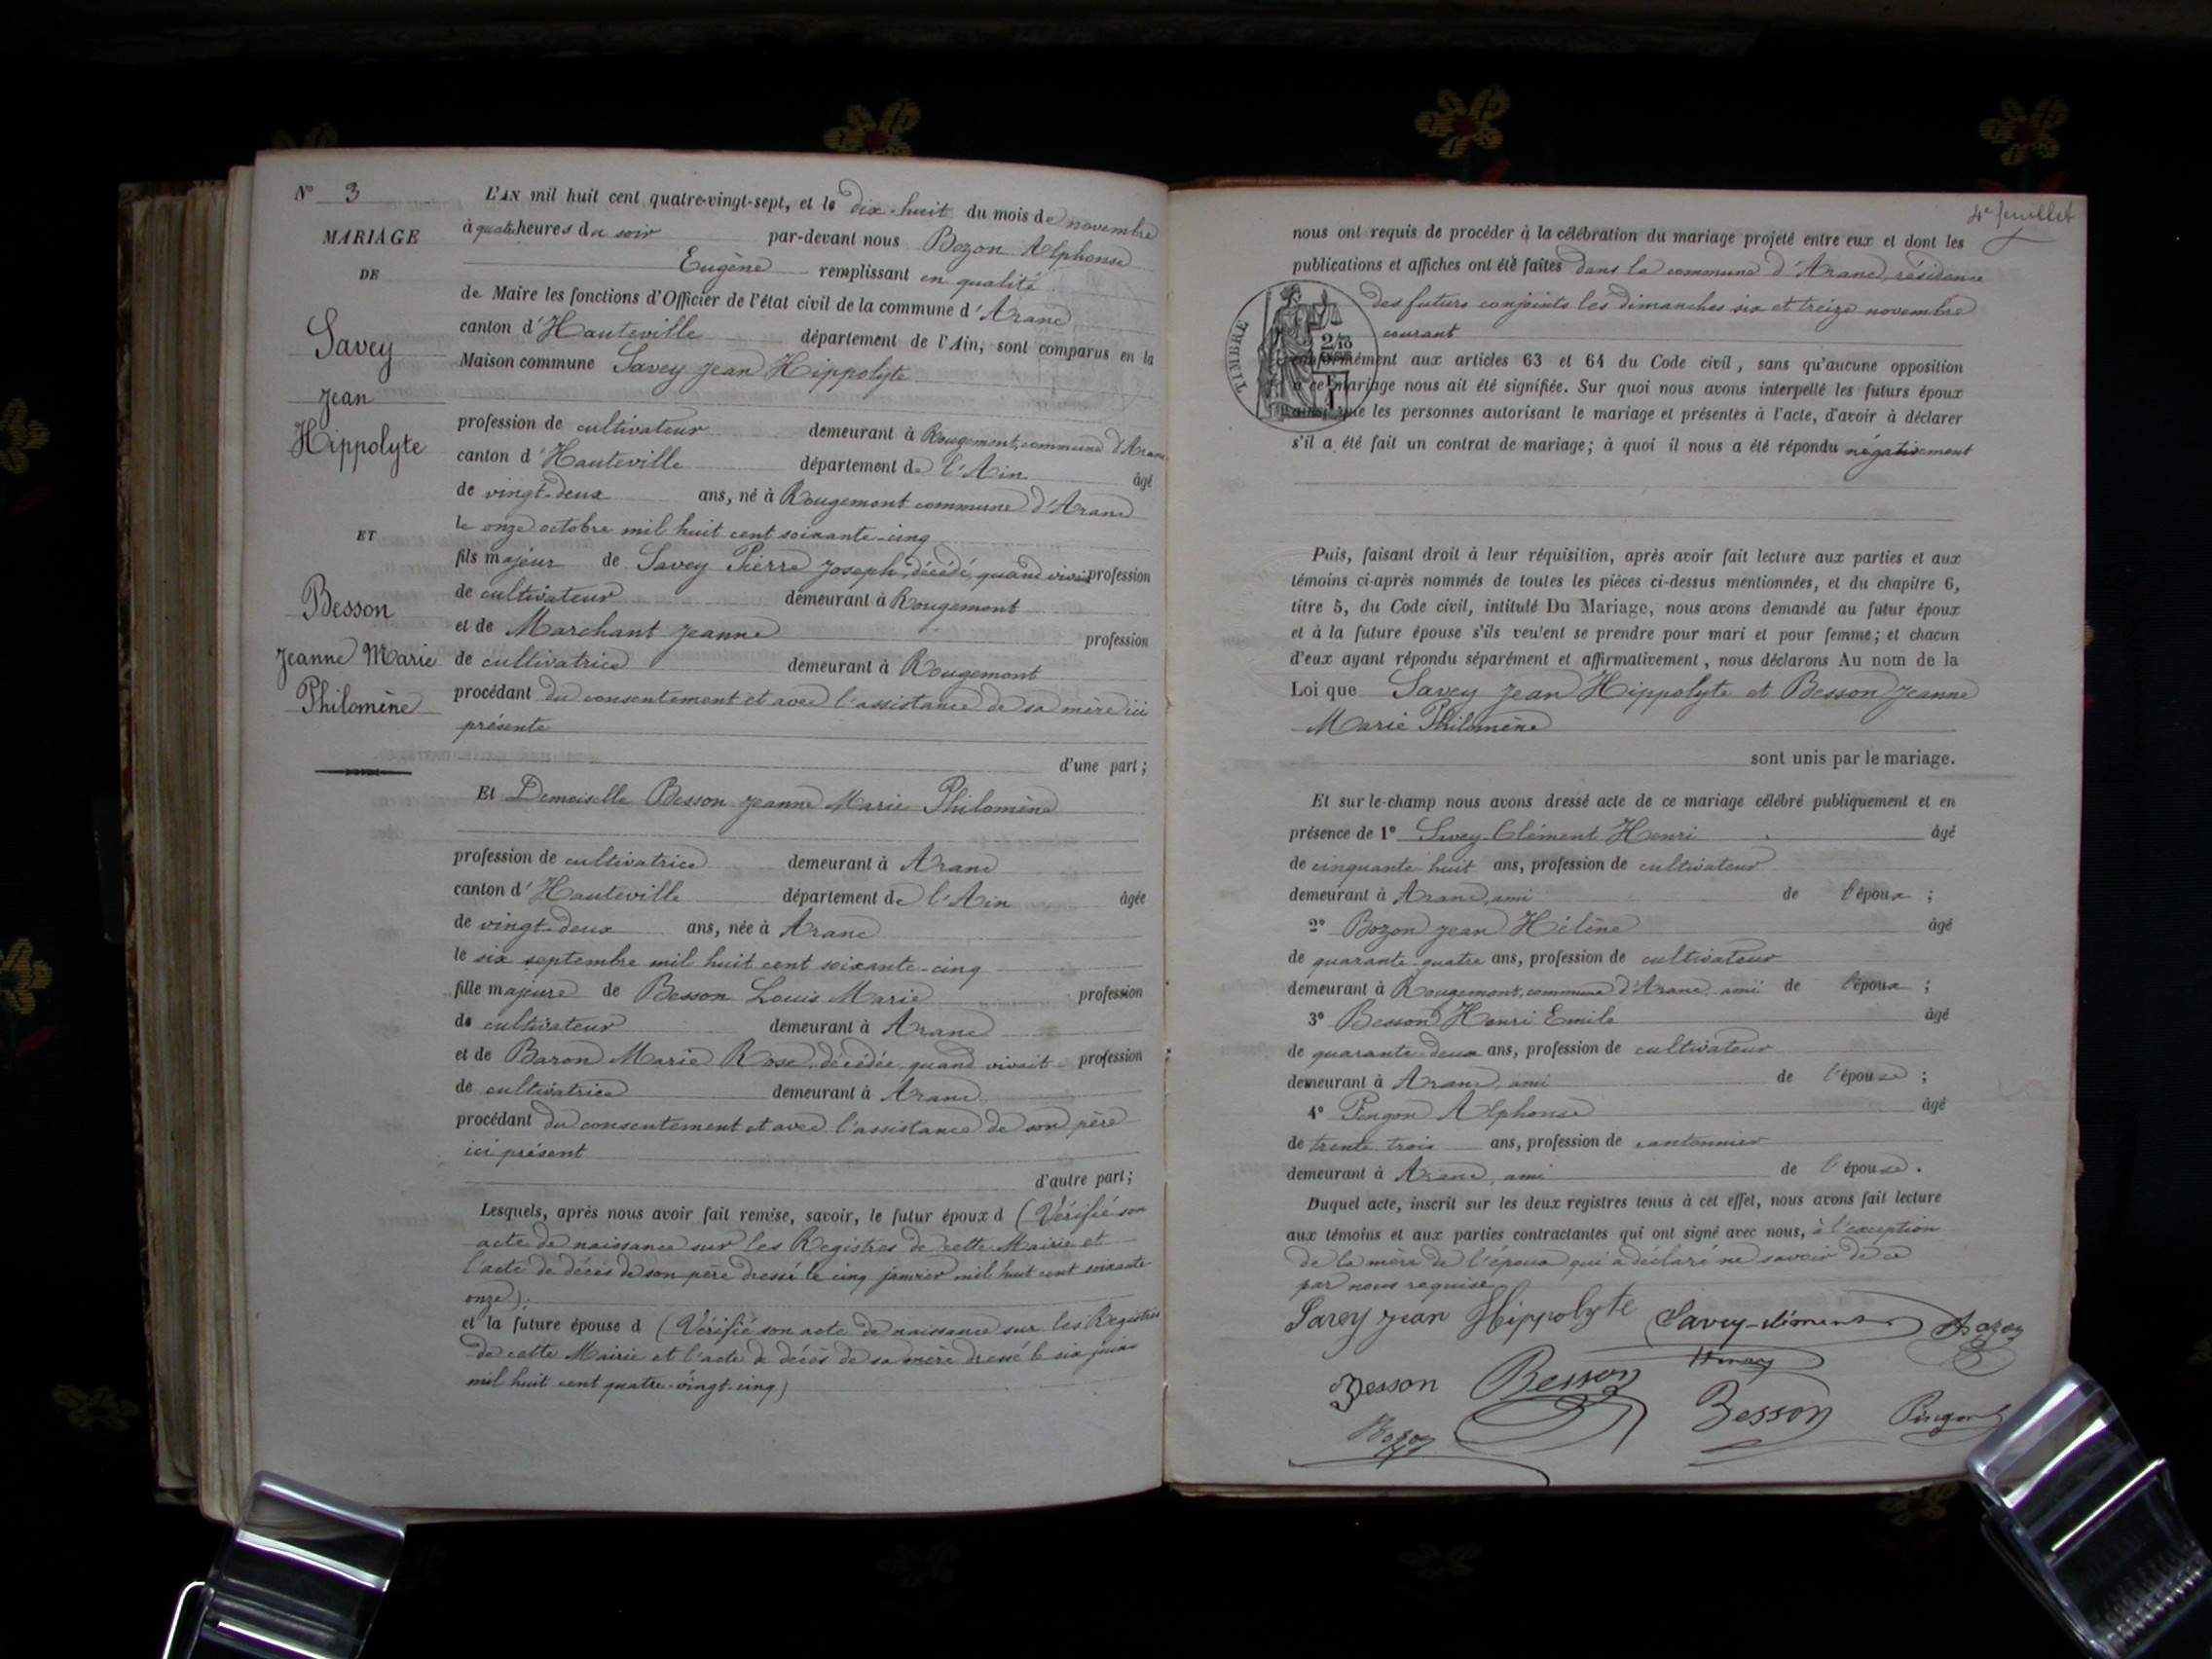 N° 3
MARIAGE
DE
Savey
Jean
Hippolyte
ET
Besson
Jeanne Marie
Philomène
L'AN mil huit cent quatre-vingt-sept, et le dix-huit du mois de novembre
à quatre heures du soir par-devant nous Bozon Alphonse
Eugène remplissant en qualité
de Maire les fonctions d'Officier de l'état civil de la commune d'Aranc
canton d'Hauteville département de l'Ain, sont comparus en la
Maison commune Savey Jean Hippolyte
profession de cultivateur demeurant à Rougemont, commune d'Aranc
canton d'Hauteville département de l'Ain âgé
de vingt-deux ans, né à Rougemont commune d'Aranc
le onze octobre mil huit cent soixante-cinq
fils majeur de Savey Pierre Joseph, décédé, quand vivait profession
de cultivateur demeurant à Rougemont
et de Marchant Jeanne profession
de cultivatrice demeurant à Rougemont
procédant du consentement et avec l'assistance de sa mère ici
présente
d'une part ;
Et Demoiselle Besson Jeanne Marie Philomène
profession de cultivatrice demeurant à Aranc
canton d'Hauteville département de l'Ain âgée
de vingt-deux ans, née à Aranc
le six septembre mil huit cent soixante-cinq
fille majeure de Besson Louis Marie profession
de cultivateur demeurant à Aranc
et de Baron Marie Rose, décédée, quand vivait profession
de cultivatrice demeurant à Aranc
procédant du consentement et avec l'assistance de son père
ici présent
d'autre part ;
Lesquels, après nous avoir fait remise, savoir, le futur époux d (Vérifié son
acte de naissance sur les Registres de cette Mairie et
l'acte de décès de son père dressé le cinq janvier mil huit cent soixante
onze).
et la future épouse d (Vérifié son acte de naissance sur les Registres
de cette Mairie et l'acte de décès de sa mère dressé le six juin
mil huit cent quatre-vingt-cinq)
4e feuillet
nous ont requis de procéder à la célébration du mariage projeté entre eux et dont les
publications et affiches ont été faites dans la commune d'Aranc, résidence
des futurs conjoints les dimanches six et treize novembre
courant
TIMBRE
conformément aux articles 63 et 64 du Code civil, sans qu'aucune opposition
à ce mariage nous ait été signifiée. Sur quoi nous avons interpellé les futurs époux
ainsi que les personnes autorisant le mariage et présentes à l'acte, d'avoir à déclarer
s'il a été fait un contrat de mariage ; à quoi il nous a été répondu négativement
Puis, faisant droit à leur réquisition, après avoir fait lecture aux parties et aux
témoins ci-après nommés de toutes les pièces ci-dessus mentionnées, et du chapitre 6,
titre 5, du Code civil, intitulé Du Mariage, nous avons demandé au futur époux
et à la future épouse s'ils veulent se prendre pour mari et pour femme ; et chacun
d'eux ayant répondu séparément et affirmativement, nous déclarons Au nom de la
Loi que Savey Jean Hippolyte et Besson Jeanne
Marie Philomène
sont unis par le mariage.
Et sur-le-champ nous avons dressé acte de ce mariage célébré publiquement et en
présence de 1° Savey-Clément Henri âgé
de cinquante huit ans, profession de cultivateur
demeurant à Aranc, ami de l'époux ;
2° Bozon Jean Hélène âgé
de quarante-quatre ans, profession de cultivateur
demeurant à Rougemont, commune d'Aranc, ami de l'époux ;
3° Besson Henri Emile âgé
de quarante-deux ans, profession de cultivateur
demeurant à Aranc, ami de l'épouse ;
4° Pingon Alphonse âgé
de trente-trois ans, profession de cantonnier
demeurant à Aranc, ami de l'épouse .
Duquel acte, inscrit sur les deux registres tenus à cet effet, nous avons fait lecture
aux témoins et aux parties contractantes qui ont signé avec nous, à l'exception
de la mère de l'époux qui a déclaré ne savoir de ce
par nous requise
Savey Jean Hippolyte Savey-clément
Besson Besson Besson Pingon
Bozon